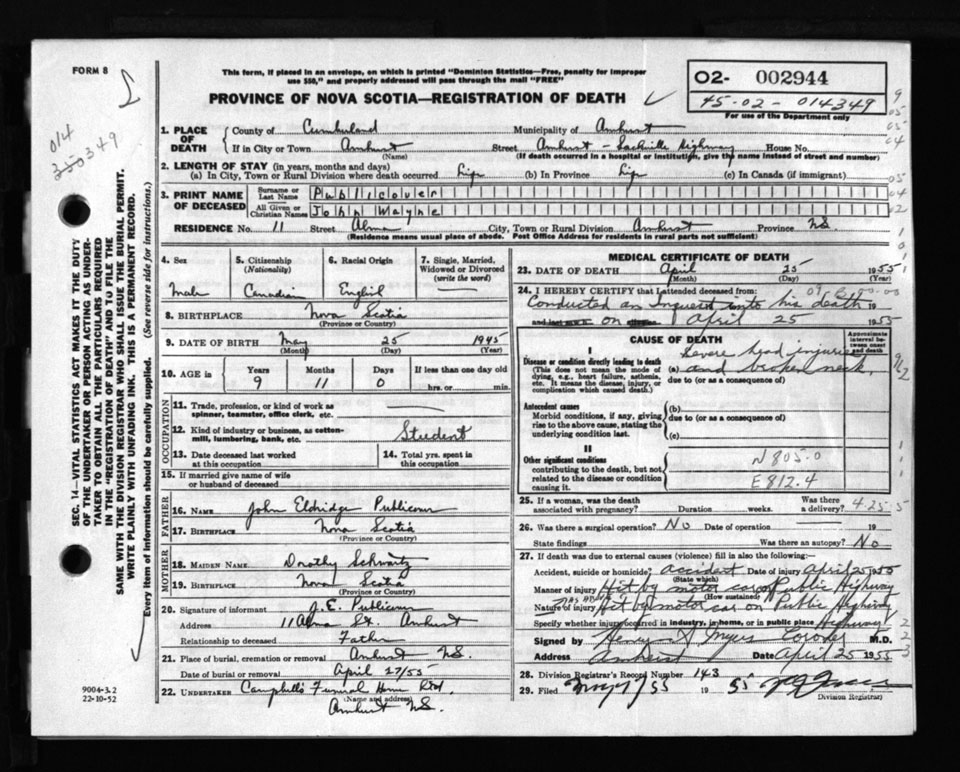 FORM 8
This form, if placed in an envelope, on which is printed "Dominion Statistics—Free, penalty for improper
use $50," and properly addressed will pass through the mail "FREE"
PROVINCE OF NOVA SCOTIA—REGISTRATION OF DEATH
02- 002944
45-02-014349
For use of the Department only
014
349
1. PLACE OF DEATH
County of Cumberland Municipality of Amherst
If in City or Town Amherst Street Amherst - Sackville Highway House No.
(Name) (If death occurred in a hospital or institution, give the name instead of street and number)
2. LENGTH OF STAY (in years, months and days)
(a) In City, Town or Rural Division where death occurred Life (b) In Province Life (c) In Canada (if immigrant)
3. PRINT NAME OF DECEASED
Surname or Last Name Publicover
All Given or Christian Names John Wayne
RESIDENCE No. 11 Street Alma City, Town or Rural Division Amherst Province N.S.
(Residence means usual place of abode. Post Office Address for residents in rural parts not sufficient)
4. Sex 5. Citizenship (Nationality) 6. Racial Origin 7. Single, Married, Widowed or Divorced (write the word)
Male Canadian English
8. BIRTHPLACE Nova Scotia
(Province or Country)
9. DATE OF BIRTH May 25 1945
(Month) (Day) (Year)
10. AGE in Years Months Days If less than one day old
9 11 0 hrs. or min.
OCCUPATION
11. Trade, profession, or kind of work as
spinner, teamster, office clerk, etc.
12. Kind of industry or business, as cotton-
mill, lumbering, bank, etc. Student
13. Date deceased last worked
at this occupation
14. Total yrs. spent in
this occupation
15. If married give name of wife
or husband of deceased
FATHER
16. NAME John Eldridge Publicover
17. BIRTHPLACE Nova Scotia
(Province or Country)
MOTHER
18. MAIDEN NAME Dorothy Schwartz
19. BIRTHPLACE Nova Scotia
(Province or Country)
20. Signature of informant J. E. Publicover
Address 11 Alma St. Amherst
Relationship to deceased Father
21. Place of burial, cremation or removal Amherst N.S.
Date of burial or removal April 27/55
22. UNDERTAKER Campbell's Funeral Home Ltd.
(Name and address)
Amherst N.S.
MEDICAL CERTIFICATE OF DEATH
23. DATE OF DEATH April 25 1955
(Month) (Day) (Year)
24. I HEREBY CERTIFY that I attended deceased from:
Conducted an Inquest into his death 19
and last saw on April 25 1955
CAUSE OF DEATH
Approximate interval between onset and death
I
Disease or condition directly leading to death
(This does not mean the mode of
dying, e.g., heart failure, asthenia,
etc. It means the disease, injury, or
complication which caused death.)
(a) Severe head injuries and broken neck.
due to (or as a consequence of)
Antecedent causes
Morbid conditions, if any, giving
rise to the above cause, stating the
underlying condition last.
(b)
due to (or as a consequence of)
(c)
II
Other significant conditions
contributing to the death, but not
related to the disease or condition
causing it.
N 805.0
E 812.4
25. If a woman, was the death
associated with pregnancy? Duration weeks. Was there a delivery?
4-25-5
26. Was there a surgical operation? No Date of operation 19
State findings Was there an autopsy? No
27. If death was due to external causes (violence) fill in also the following:
Accident, suicide or homicide? Accident Date of injury April 25 1955
(State which)
Manner of injury Hit by motor car on Public Highway
(How sustained)
Nature of injury Hit by motor car on Public Highway
Specify whether injury occurred in industry, in home, or in public place Highway
Signed by Henry A Myers Coroner M.D.
Address Amherst Date April 25 1955
28. Division Registrar's Record Number 143
29. Filed 55 19 55
Division Registrar
SEC. 14—VITAL STATISTICS ACT MAKES IT THE DUTY
OF THE UNDERTAKER OR PERSON ACTING AS UNDER-
TAKER TO OBTAIN ALL THE PARTICULARS REQUIRED
IN THE "REGISTRATION OF DEATH" AND TO FILE THE
SAME WITH THE DIVISION REGISTRAR WHO SHALL ISSUE THE BURIAL PERMIT.
WRITE PLAINLY WITH UNFADING INK. THIS IS A PERMANENT RECORD.
Every item of information should be carefully supplied. (See reverse side for instructions.)
9004-3.2
22-10-52